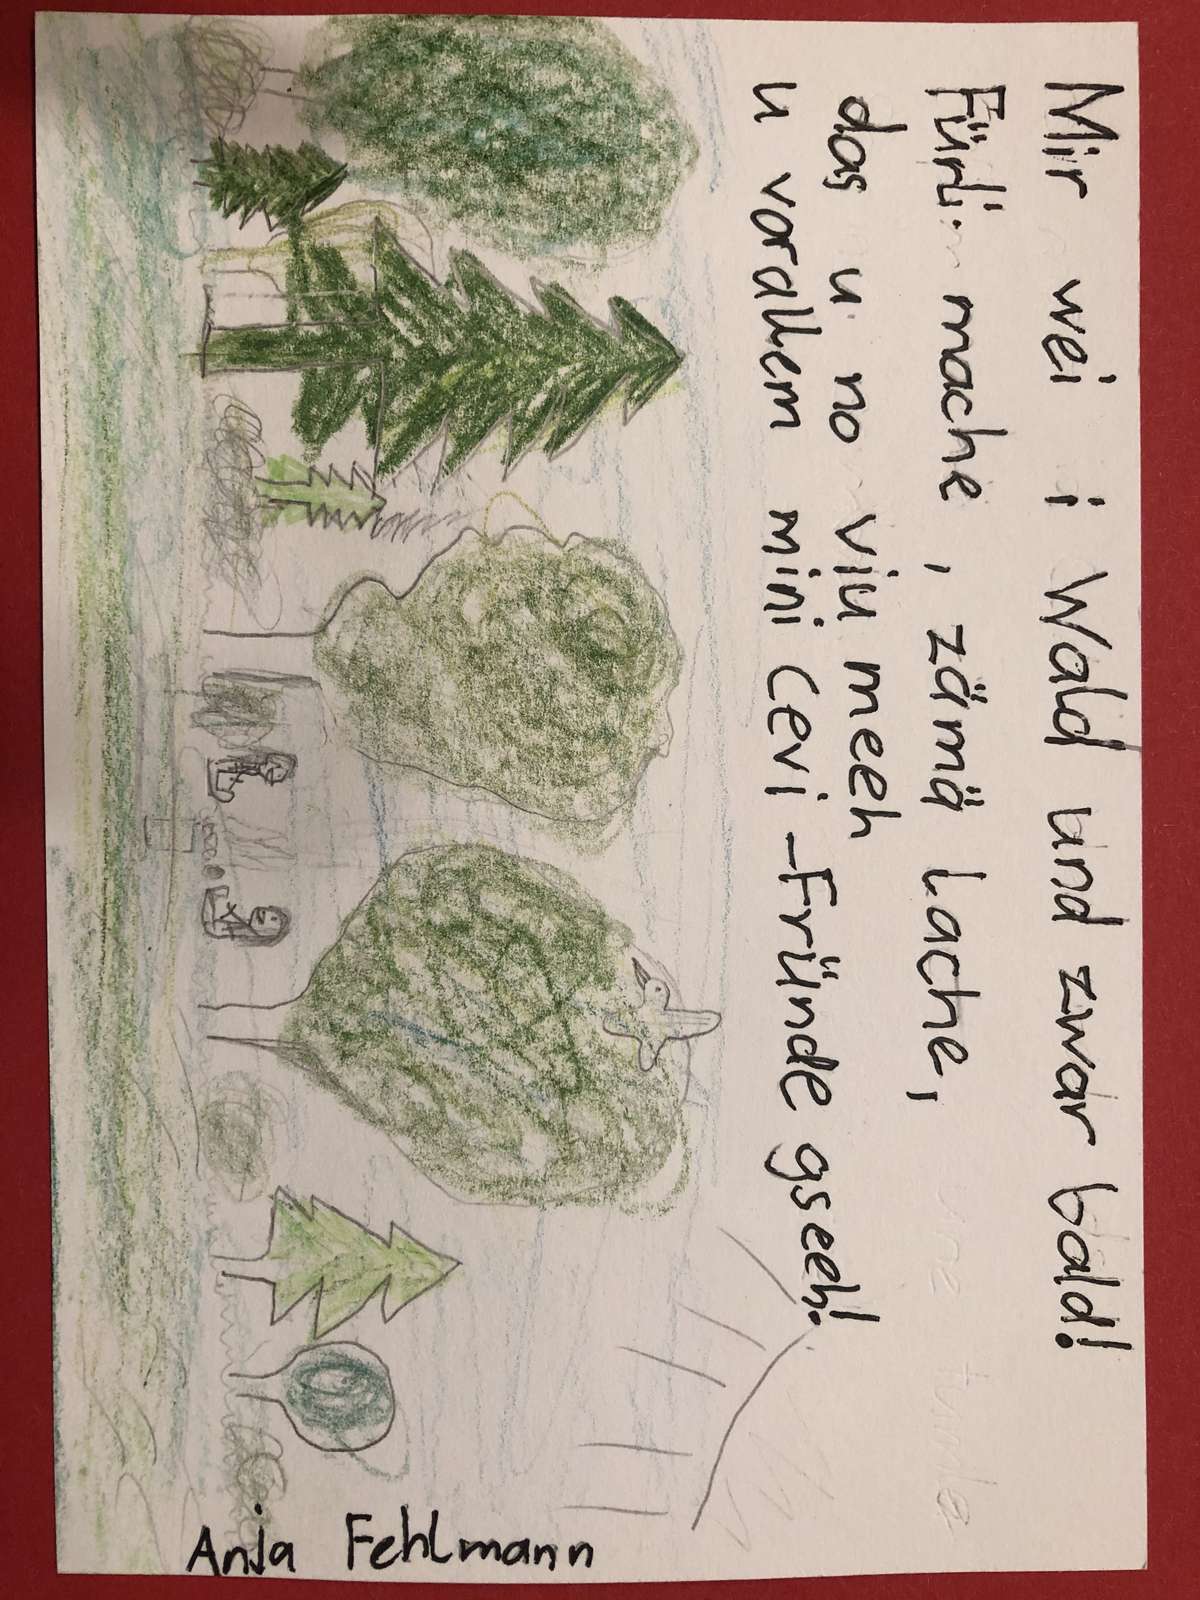 Mir wei i Wald und zwar bald!
Fürli mache, zämä Lache,
das u no viu meeh
u vorallem mini Cevi-Fründe gseeh!
Anja Fehlmann